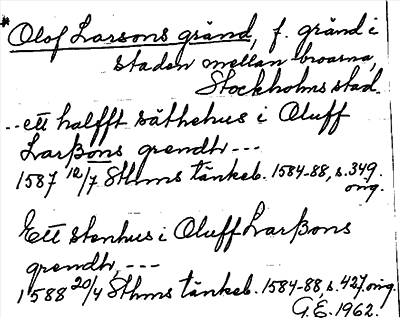 * Olof Larsons gränd, f. gränd i
staden mellan broarna,
Stockholms stad.
-- ett halfft säthehus i Oluff
Larßons grendh ---
1587 12/7 Sthms tänkeb. 1584-88, s. 349.
orig.
Ett stenhus i Oluff Larßons
grendh, ---
1588 20/4 Sthms tänkeb. 1584-88, s. 427, orig.
G.E. 1962.